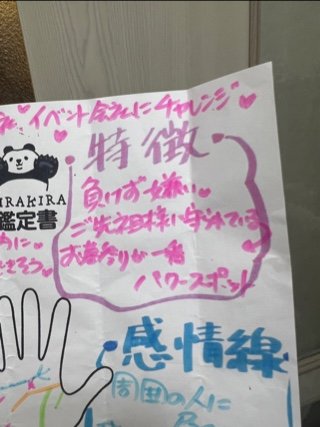 イベント会社にチャレンジ
特徴
IRAKIRA
鑑定書
負けず嫌い
ご先祖様に守られている
お墓参りが一番
パワースポット
感情線
周囲の人に